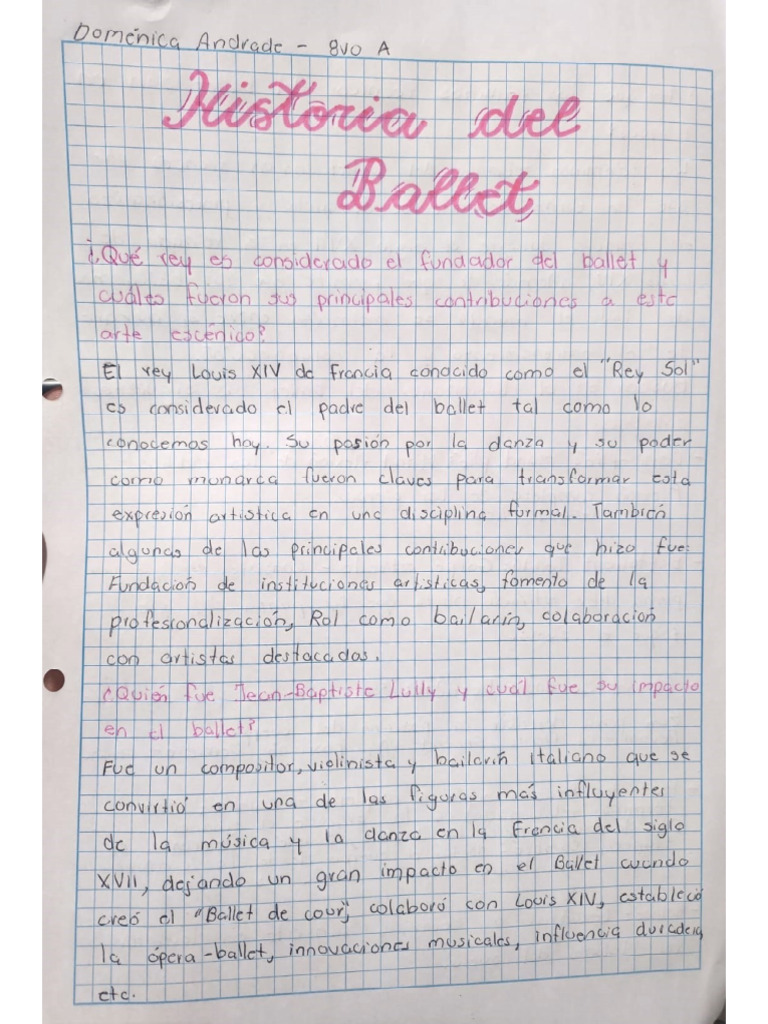 Doménica Andrade - 8vo A
Historia del
Ballet
¿Qué rey es considerado el fundador del ballet y
cuáles fueron sus principales contribuciones a este
arte escénico?
El rey Louis XIV de Francia conocido como el "Rey Sol"
es considerado el padre del ballet tal como lo
conocemos hoy. Su pasión por la danza y su poder
como monarca fueron claves para transformar esta
expresión artistica en una disciplina formal. También
algunas de las principales contribuciones que hizo fue:
Fundación de instituciones artisticas, fomento de la
profesionalización, Rol como bailarín, colaboración
con artistas destacados.
¿Quién fue Jean-Baptiste Lully y cuál fue su impacto
en el ballet?
Fue un compositor, violinista y bailarín italiano que se
convirtió en una de las figuras más influyentes
de la música y la danza en la Francia del siglo
XVII, dejando un gran impacto en el Ballet cuando
creó el "Ballet de cour", colaboró con Louis XIV, estableció
la ópera-ballet, innovaciones musicales, influencia duradera,
etc.